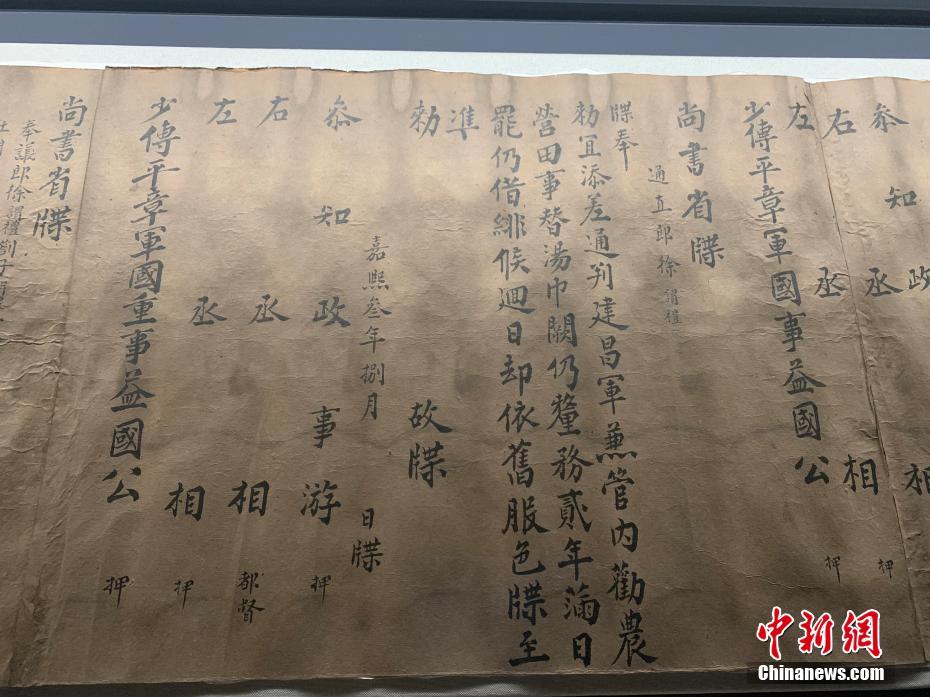 参知政
右丞相 押
左丞相 押
少傅平章軍國事益國公
尚書省牒
通直郎徐謂禮
牒奉
勑宜添差通判建昌軍兼管内勸農
營田事替湯巾闕仍釐務貳年滿日
罷仍借緋候迴日却依舊服色牒至
準
勑故牒
嘉熙叁年捌月 日牒
叅知政事游 押
右丞相 都督
左丞相 押
少傅平章軍國重事益國公 押
尚書省牒
奉議郎徐謂禮
中新網
Chinanews.com